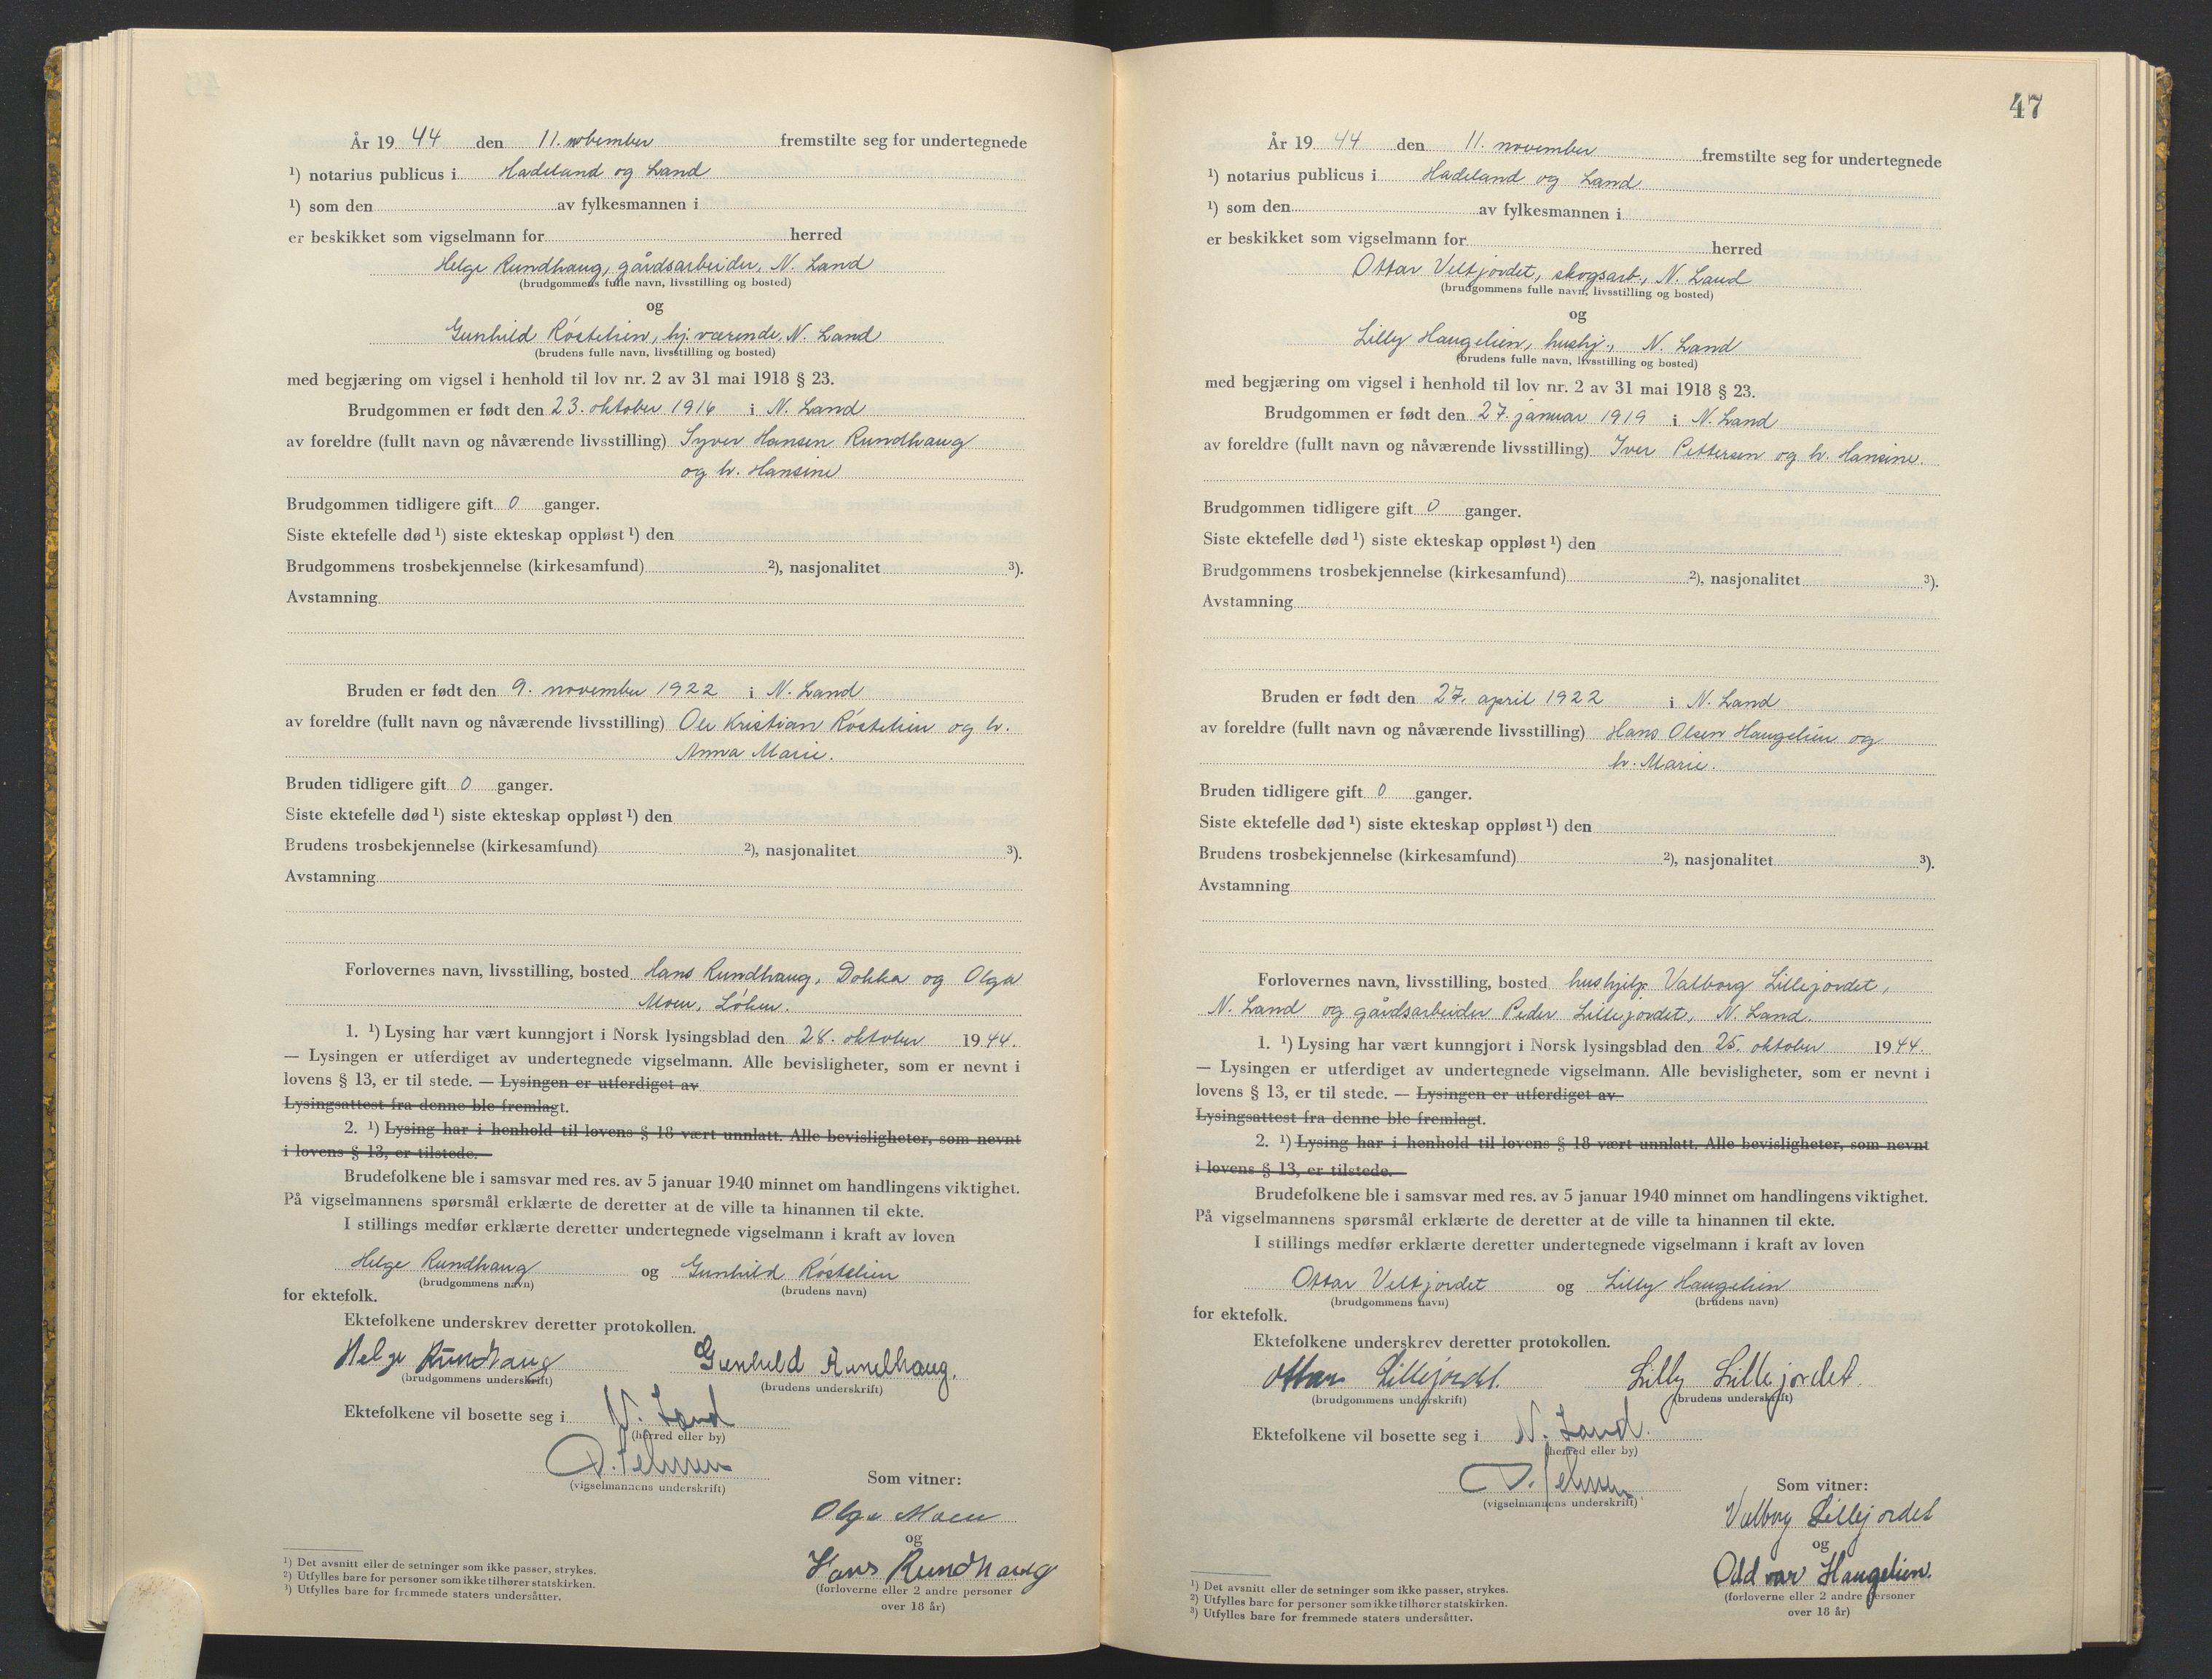 År 19 44 den 11. november fremstilte seg for undertegnede
¹) notarius publicus i Hadeland og Land
¹) som den av fylkesmannen i
er beskikket som vigselmann for herred
Helge Rundhaug, gårdsarbeider, N. Land
(brudgommens fulle navn, livsstilling og bosted)
og
Gunhild Róstelien, hj. værende, N. Land
(brudens fulle navn, livsstilling og bosted)
med begjæring om vigsel i henhold til lov nr. 2 av 31 mai 1918 § 23.
Brudgommen er født den 23. oktober 1916 i N. Land
av foreldre (fullt navn og nåværende livsstilling) Syver Hansen Rundhaug
og h. Hansine
Brudgommen tidligere gift 0 ganger.
Siste ektefelle død ¹) siste ekteskap oppløst ¹) den
Brudgommens trosbekjennelse (kirkesamfund) ²), nasjonalitet ³).
Avstamning
Bruden er født den 9. november 1922 i N. Land
av foreldre (fullt navn og nåværende livsstilling) Ole Kristian Róstelien og h.
Anna Marie.
Bruden tidligere gift 0 ganger.
Siste ektefelle død ¹) siste ekteskap oppløst ¹) den
Brudens trosbekjennelse (kirkesamfund) ²), nasjonalitet ³).
Avstamning
Forlovernes navn, livsstilling, bosted Hans Rundhaug, Dokka og Olga
Moen, Løken.
1. ¹) Lysing har vært kunngjort i Norsk lysingsblad den 28. oktober 1944.
— Lysingen er utferdiget av undertegnede vigselmann. Alle bevisligheter, som er nevnt i
lovens § 13, er til stede. — Lysingen er utferdiget av
Lysingsattest fra denne ble fremlagt.
2. ¹) Lysing har i henhold til lovens § 18 vært unnlatt. Alle bevisligheter, som nevnt
i lovens § 13, er tilstede. —
Brudefolkene ble i samsvar med res. av 5 januar 1940 minnet om handlingens viktighet.
På vigselmannens spørsmål erklærte de deretter at de ville ta hinannen til ekte.
I stillings medfør erklærte deretter undertegnede vigselmann i kraft av loven
Helge Rundhaug og Gunhild Róstelien
(brudgommens navn) (brudens navn)
for ektefolk.
Ektefolkene underskrev deretter protokollen.
Helge Rundhaug Gunhild Rundhaug.
(brudgommens underskrift) (brudens underskrift)
Ektefolkene vil bosette seg i N. Land
(herred eller by)
(vigselmannens underskrift)
Som vitner:
Olga Moen
og
Hans Rundhaug
(forloverne eller 2 andre personer
over 18 år)
¹) Det avsnitt eller de setninger som ikke passer, strykes.
²) Utfylles bare for personer som ikke tilhører statskirken.
³) Utfylles bare for fremmede staters undersåtter.
47
År 19 44 den 11. november fremstilte seg for undertegnede
¹) notarius publicus i Hadeland og Land
¹) som den av fylkesmannen i
er beskikket som vigselmann for herred
Ottar Veltjordet, skogsarb., N. Land
(brudgommens fulle navn, livsstilling og bosted)
og
Lilly Haugelien, hushj., N. Land
(brudens fulle navn, livsstilling og bosted)
med begjæring om vigsel i henhold til lov nr. 2 av 31 mai 1918 § 23.
Brudgommen er født den 27. januar 1919 i N. Land
av foreldre (fullt navn og nåværende livsstilling) Iver Pettersen og h. Hansine.
Brudgommen tidligere gift 0 ganger.
Siste ektefelle død ¹) siste ekteskap oppløst ¹) den
Brudgommens trosbekjennelse (kirkesamfund) ²), nasjonalitet ³).
Avstamning
Bruden er født den 27. april 1922 i N. Land
av foreldre (fullt navn og nåværende livsstilling) Hans Olsen Haugelien og
h. Marie.
Bruden tidligere gift 0 ganger.
Siste ektefelle død ¹) siste ekteskap oppløst ¹) den
Brudens trosbekjennelse (kirkesamfund) ²), nasjonalitet ³).
Avstamning
Forlovernes navn, livsstilling, bosted hushjelp Valborg Lillejordet,
N. Land og gårdsarbeider Peder Lillejordet, N. Land.
1. ¹) Lysing har vært kunngjort i Norsk lysingsblad den 25. oktober 1944.
— Lysingen er utferdiget av undertegnede vigselmann. Alle bevisligheter, som er nevnt i
lovens § 13, er til stede. — Lysingen er utferdiget av
Lysingsattest fra denne ble fremlagt.
2. ¹) Lysing har i henhold til lovens § 18 vært unnlatt. Alle bevisligheter, som nevnt
i lovens § 13, er tilstede. —
Brudefolkene ble i samsvar med res. av 5 januar 1940 minnet om handlingens viktighet.
På vigselmannens spørsmål erklærte de deretter at de ville ta hinannen til ekte.
I stillings medfør erklærte deretter undertegnede vigselmann i kraft av loven
Ottar Veltjordet og Lilly Haugelien
(brudgommens navn) (brudens navn)
for ektefolk.
Ektefolkene underskrev deretter protokollen.
Ottar Lillejordet. Lilly Lillejordet.
(brudgommens underskrift) (brudens underskrift)
Ektefolkene vil bosette seg i N. Land.
(herred eller by)
(vigselmannens underskrift)
Som vitner:
Valborg Lillejordet
og
Oddvar Haugelien.
(forloverne eller 2 andre personer
over 18 år)
¹) Det avsnitt eller de setninger som ikke passer, strykes.
²) Utfylles bare for personer som ikke tilhører statskirken.
³) Utfylles bare for fremmede staters undersåtter.